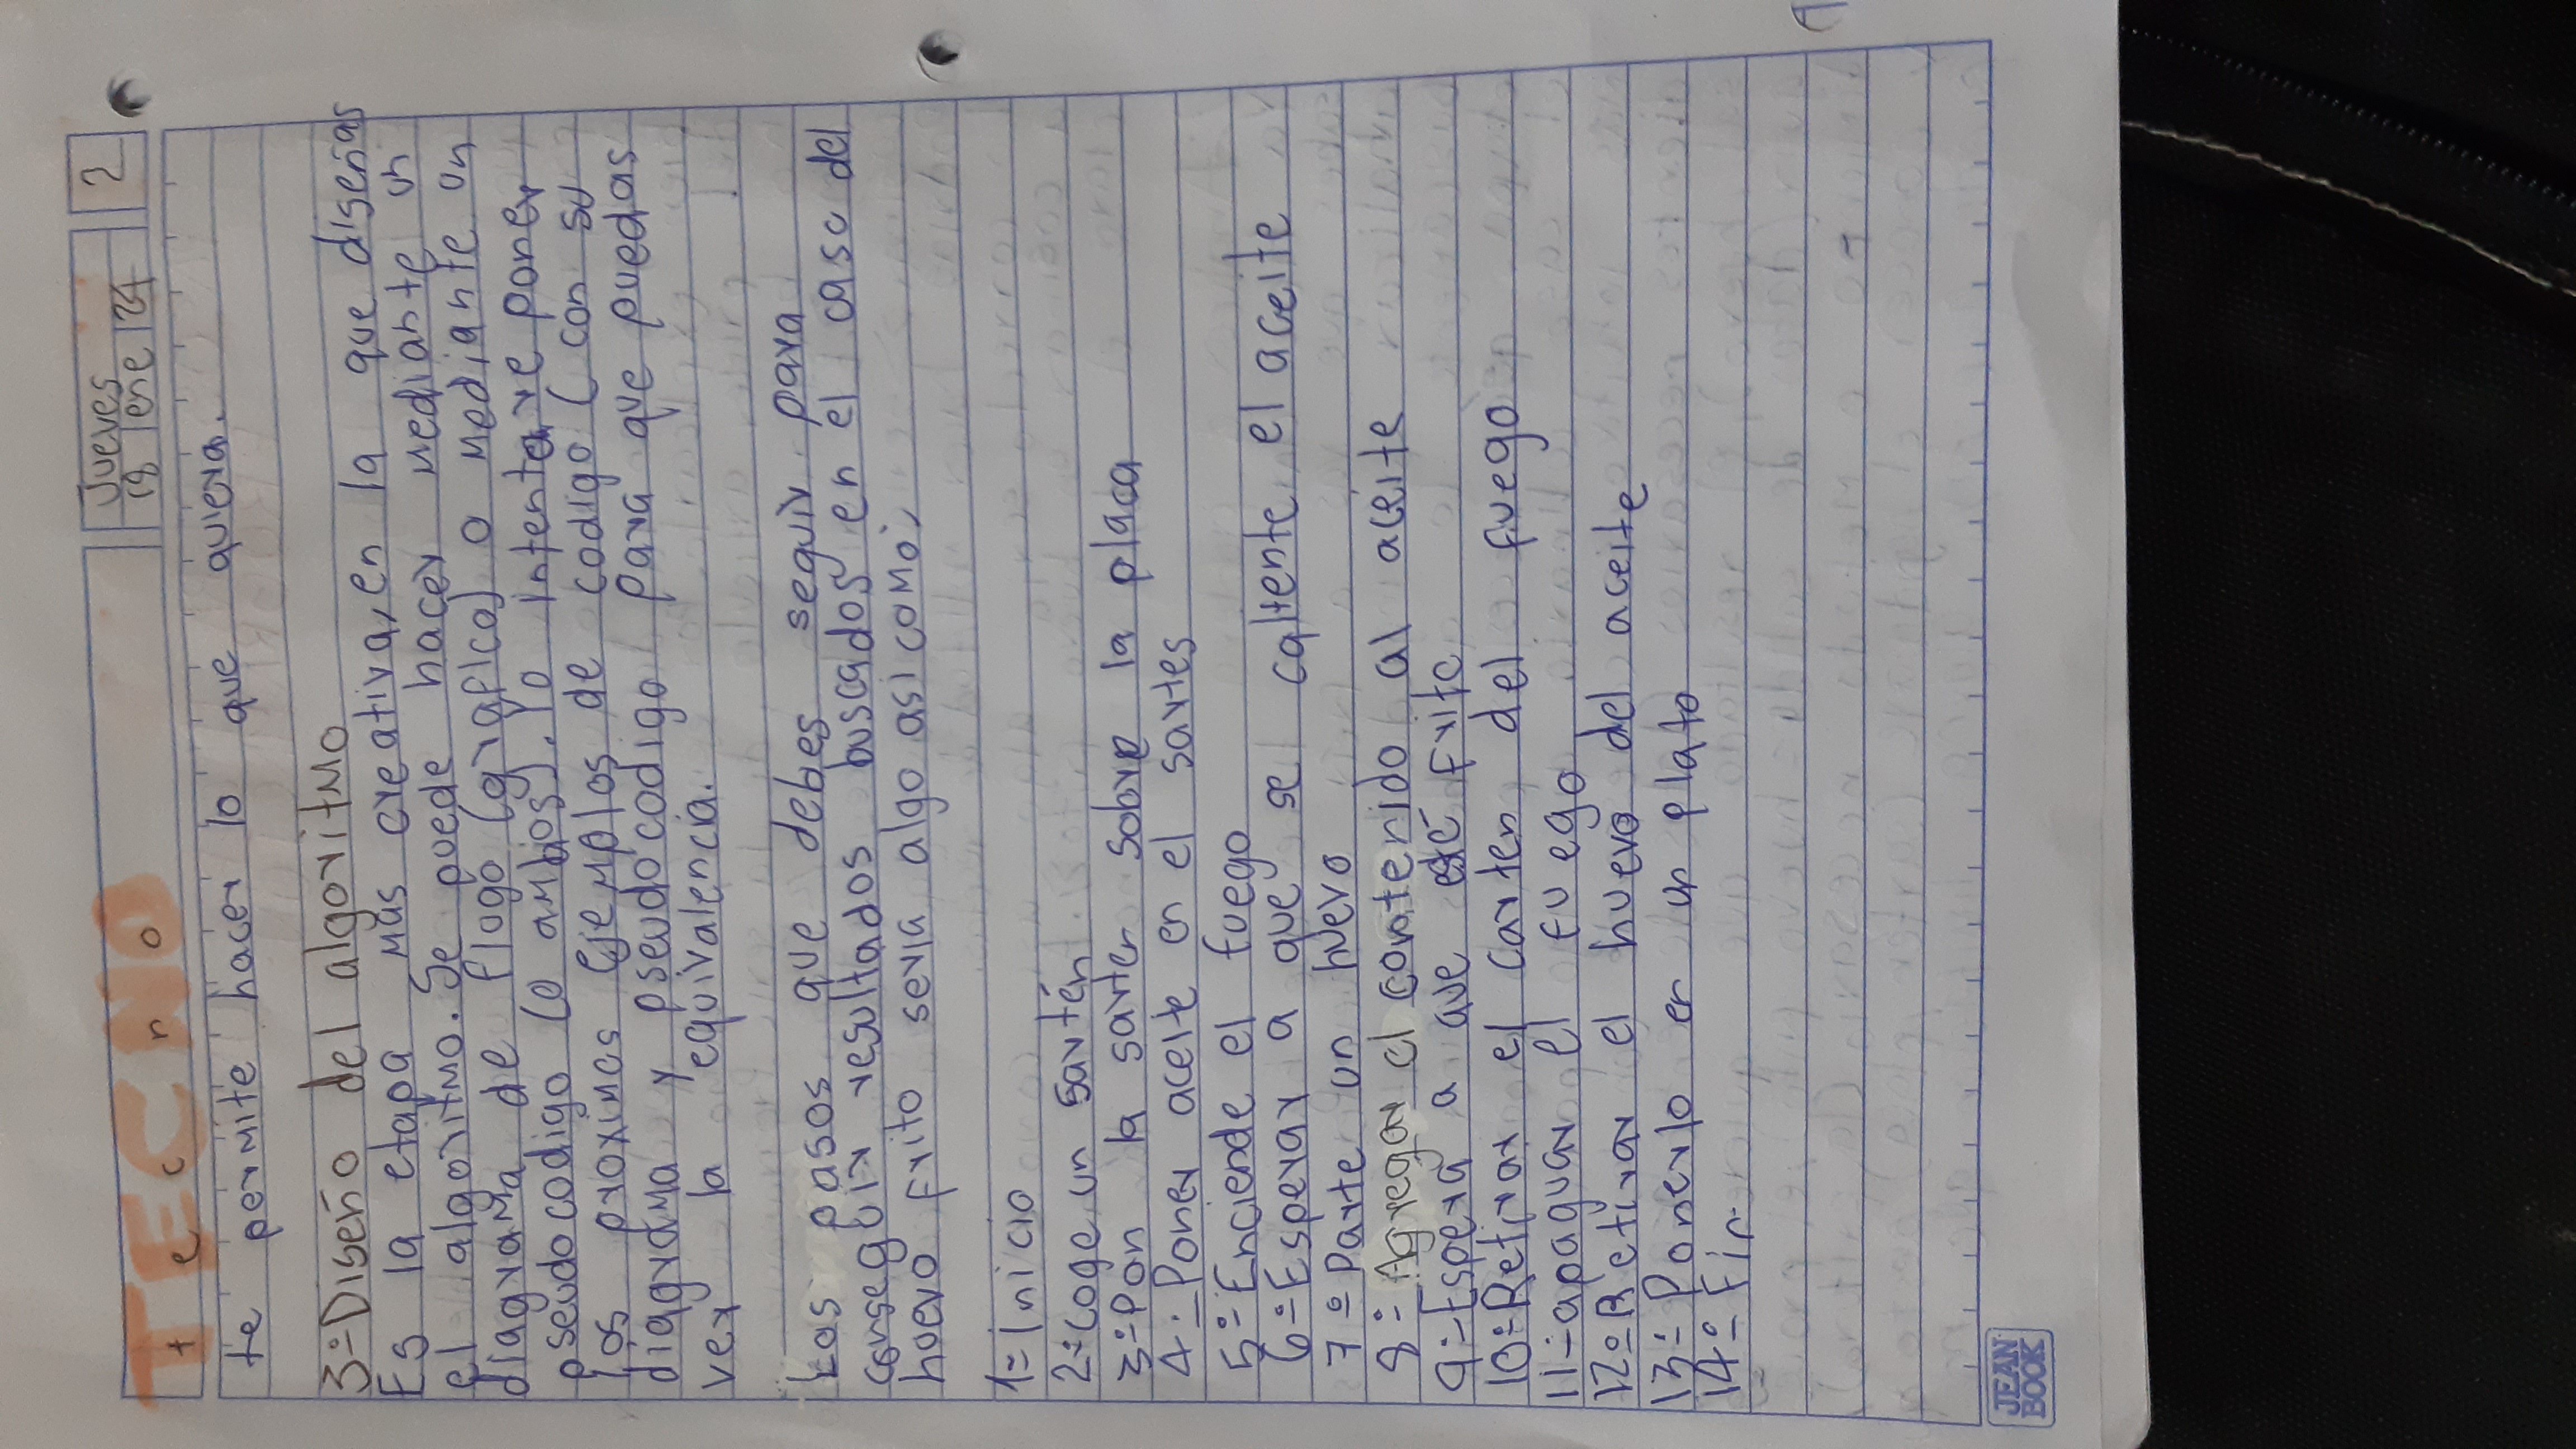 TECNO
tecno
Jueves
18 ene 24
2
te permite hacer lo que quiera.
3=Diseño del algoritmo
Es la etapa más creativa, en la que diseñas
el algoritmo. Se puede hacer mediante un
diagrama de flugo (grafica) o mediante un
pseudocodigo (o ambos). Yo intentare poner
los proximos ejemplos de codigo (con su
diagrama y pseudocodigo para que puedas
ver la equivalencia.
Los pasos que debes seguir para
conseguir resultados buscados en el caso del
huevo frito seria algo asi como:
1= Inicio
2= Coge un sartén
3= Pon la sarten sobre la placa
4= Poner aceite en el sartes
5= Enciende el fuego
6= Esperar a que se caltente el aceite
7= Parte un huevo
8= Agregar el contenido al aceite
9= Espera a que esté frito
10= Retirar el carten del fuego
11= apaguar el fuego
12= Retirar el huevo del aceite
13= Ponerlo en un plato
14= Fin
JEAN
BOOK